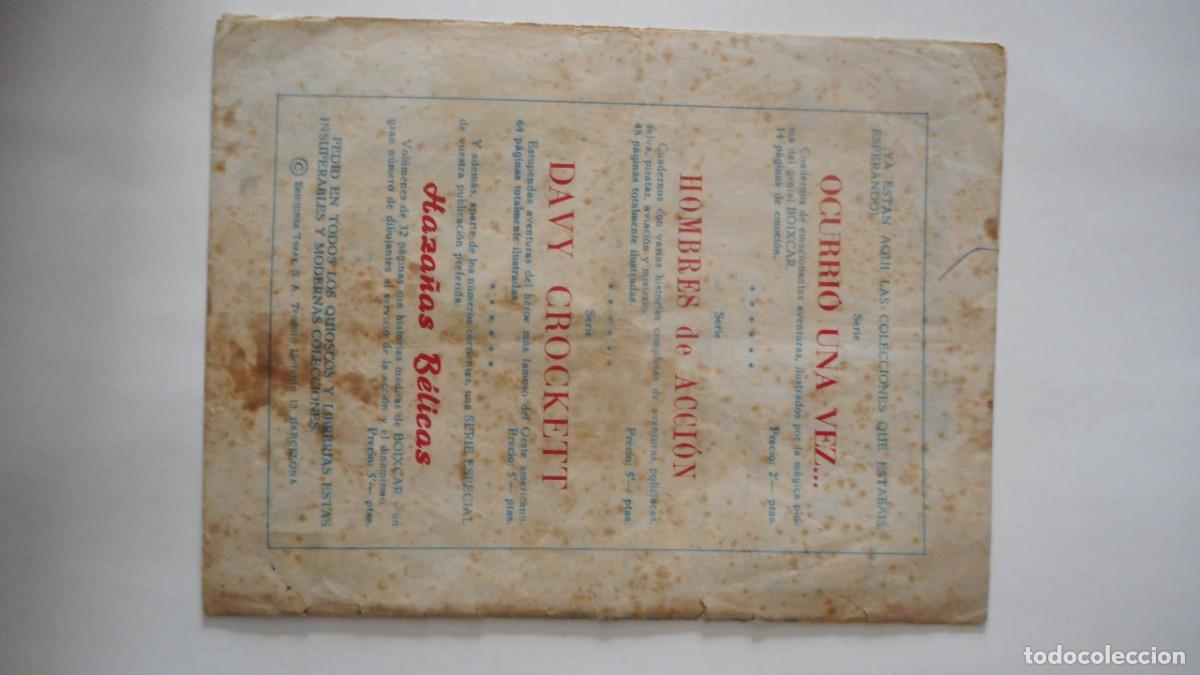 ¡YA ESTAN AQUI LAS COLECCIONES QUE ESTABAIS
ESPERANDO!
Serie
OCURRIÓ UNA VEZ...
Cuadernos de emocionantes aventuras, ilustrados por la mágica plu-
ma del genial BOIXCAR.
14 páginas de emoción. Precio: 2'— ptas.
Serie
HOMBRES de ACCIÓN
Cuadernos con varias historias completas de aventuras policíacas,
selva, piratas, aviación y misterio.
48 páginas totalmente ilustradas. Precio: 5'— ptas.
Serie
DAVY CROCKETT
Estupendas aventuras del héroe más famoso del Oeste americano.
64 páginas totalmente ilustradas. Precio: 5'— ptas.
Y además, aparte de los números corrientes, una SERIE ESPECIAL
de vuestra publicación preferida
Hazañas Bélicas
Volúmenes de 32 páginas con historias inéditas de BOIXCAR y un
gran número de dibujantes al servicio de la acción y el dinamismo.
Precio: 5'— ptas.
PEDID EN TODOS LOS QUIOSCOS Y LIBRERIAS ESTAS
INSUPERABLES Y MODERNAS COLECCIONES
© EDICIONES TORAY, S. A. TEODORO LLORENTE, 13 BARCELONA
todocoleccion